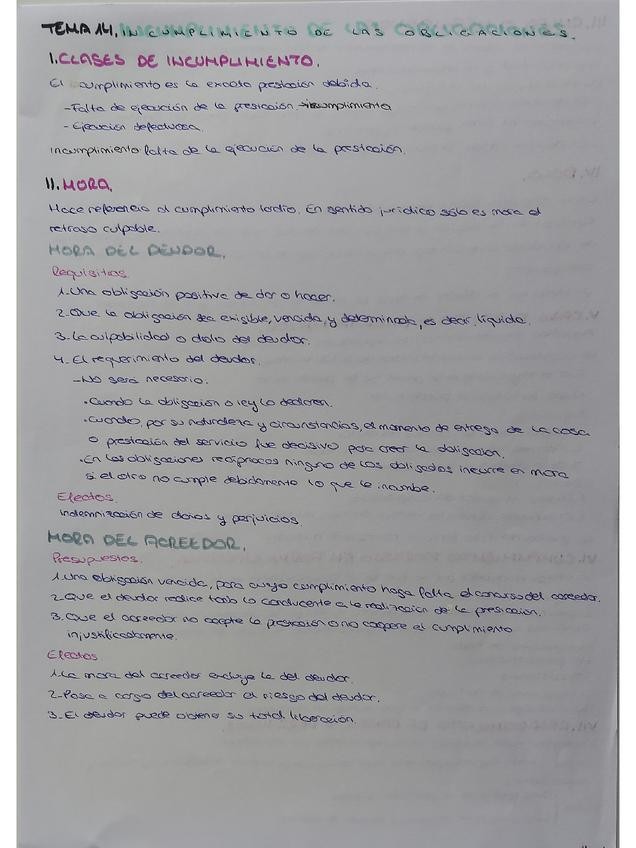 TEMA 14. INCUMPLIMIENTO DE LAS OBLIGACIONES.
I. CLASES DE INCUMPLIMIENTO.
El cumplimiento es la exacta prestación debida.
- Falta de ejecución de la prestación → incumplimiento
- Ejecución defectuosa.
incumplimiento falta de la ejecución de la prestación.
II. MORA.
Hace referencia al cumplimiento tardío. En sentido jurídico sólo es mora el
retraso culpable.
MORA DEL DEUDOR.
Requisitos
1. Una obligación positiva de dar o hacer.
2. Que la obligación sea exigible, vencida, y determinada, es decir, líquida.
3. La culpabilidad o dolo del deudor.
4. El requerimiento del deudor.
- No será necesario.
• Cuando la obligación o ley lo declaren.
• Cuando, por su naturaleza y circunstancias, el momento de entrega de la cosa
o prestación del servicio fue decisivo para crear la obligación.
• En las obligaciones recíprocas ninguno de los obligados incurre en mora
si el otro no cumple debidamente lo que le incumbe.
Efectos
Indemnización de daños y perjuicios
MORA DEL ACREEDOR.
Presupuestos.
1. Una obligación vencida, para cuyo cumplimiento haga falta el concurso del acreedor.
2. Que el deudor realice todo lo conducente a la realización de la prestación.
3. Que el acreedor no acepte la prestación o no coopere al cumplimiento
injustificadamente.
Efectos
1. La mora del acreedor excluye la del deudor.
2. Pasa a cargo del acreedor el riesgo del deudor.
3. El deudor puede obtener su total liberación.